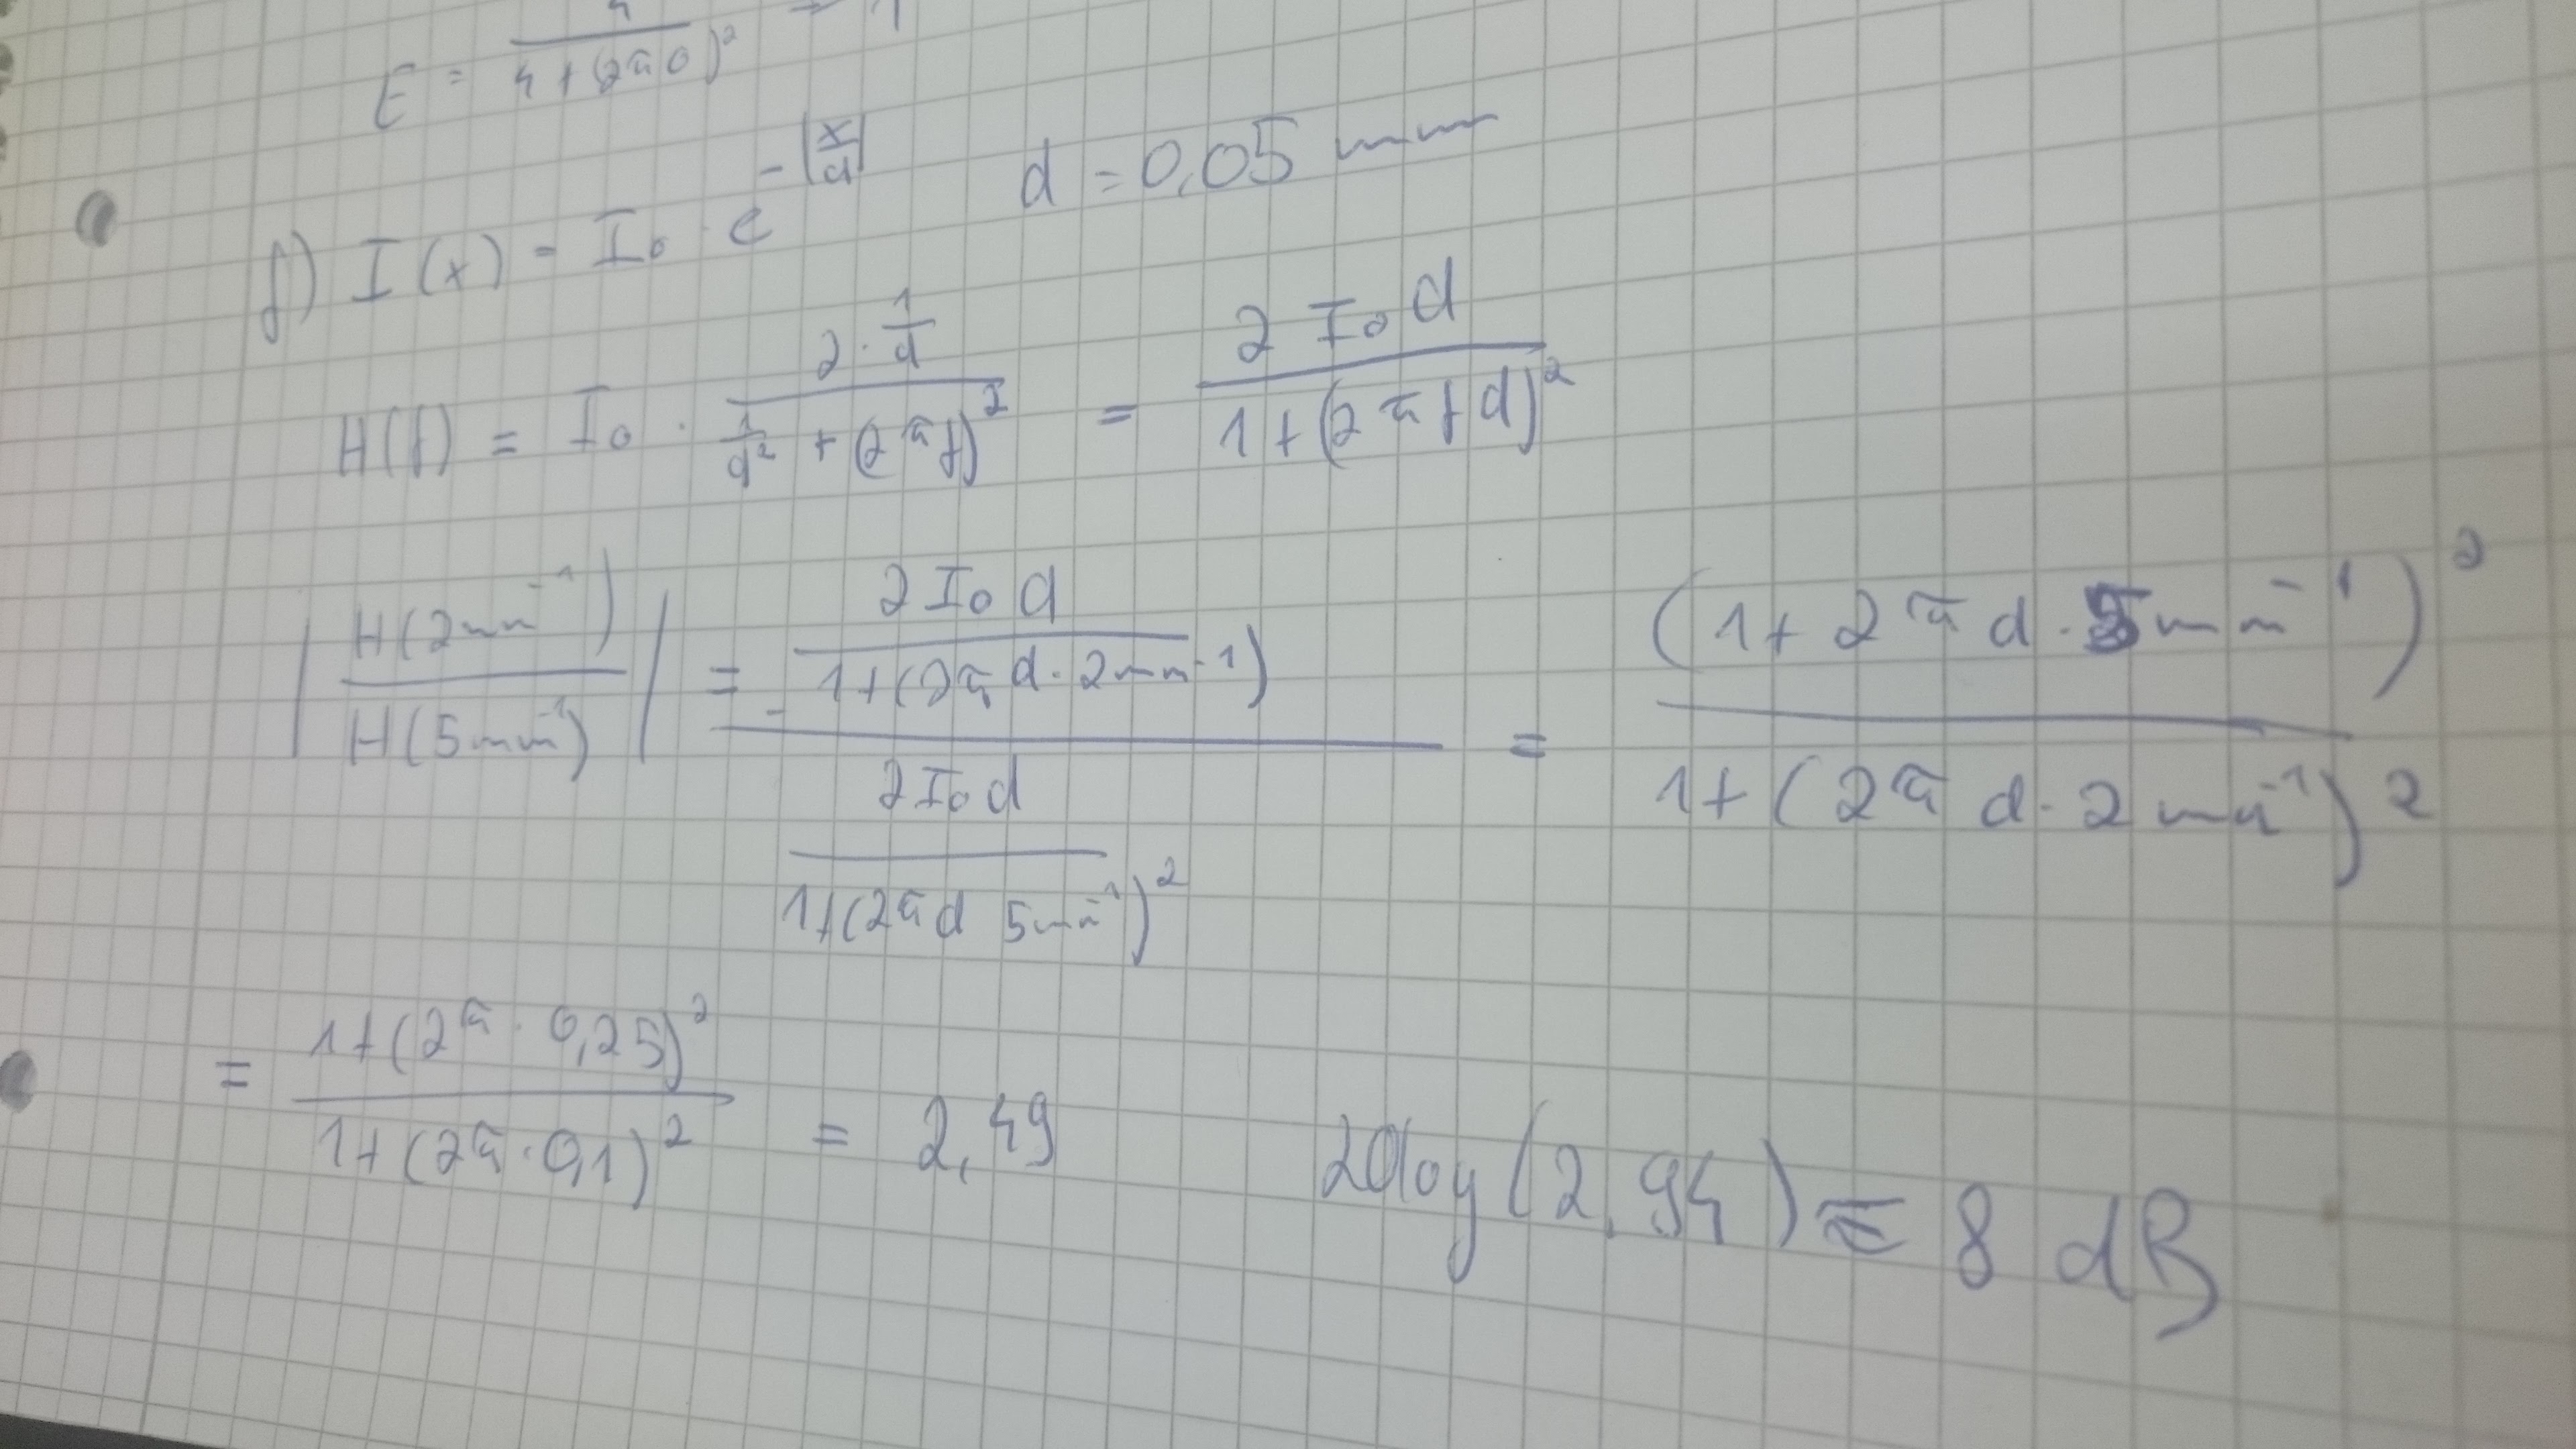 E = 4 / (4 + (2π0)²) = 1
f) I(x) = I₀ · e^(-|x/d|) d = 0,05 mm
H(f) = I₀ · (2 · 1/d) / (1/d² + (2πf)²) = 2 I₀ d / (1 + (2πfd)²)
|H(2mm⁻¹) / H(5mm⁻¹)| = (2I₀d / (1+(2πd·2mm⁻¹))) / (2I₀d / (1+(2πd 5mm⁻¹)²)) = (1+2πd·5mm⁻¹)² / (1+(2πd·2mm⁻¹)²)
= (1+(2π·0,25)²) / (1+(2π·0,1)²) = 2,49 20log(2,94) = 8 dB